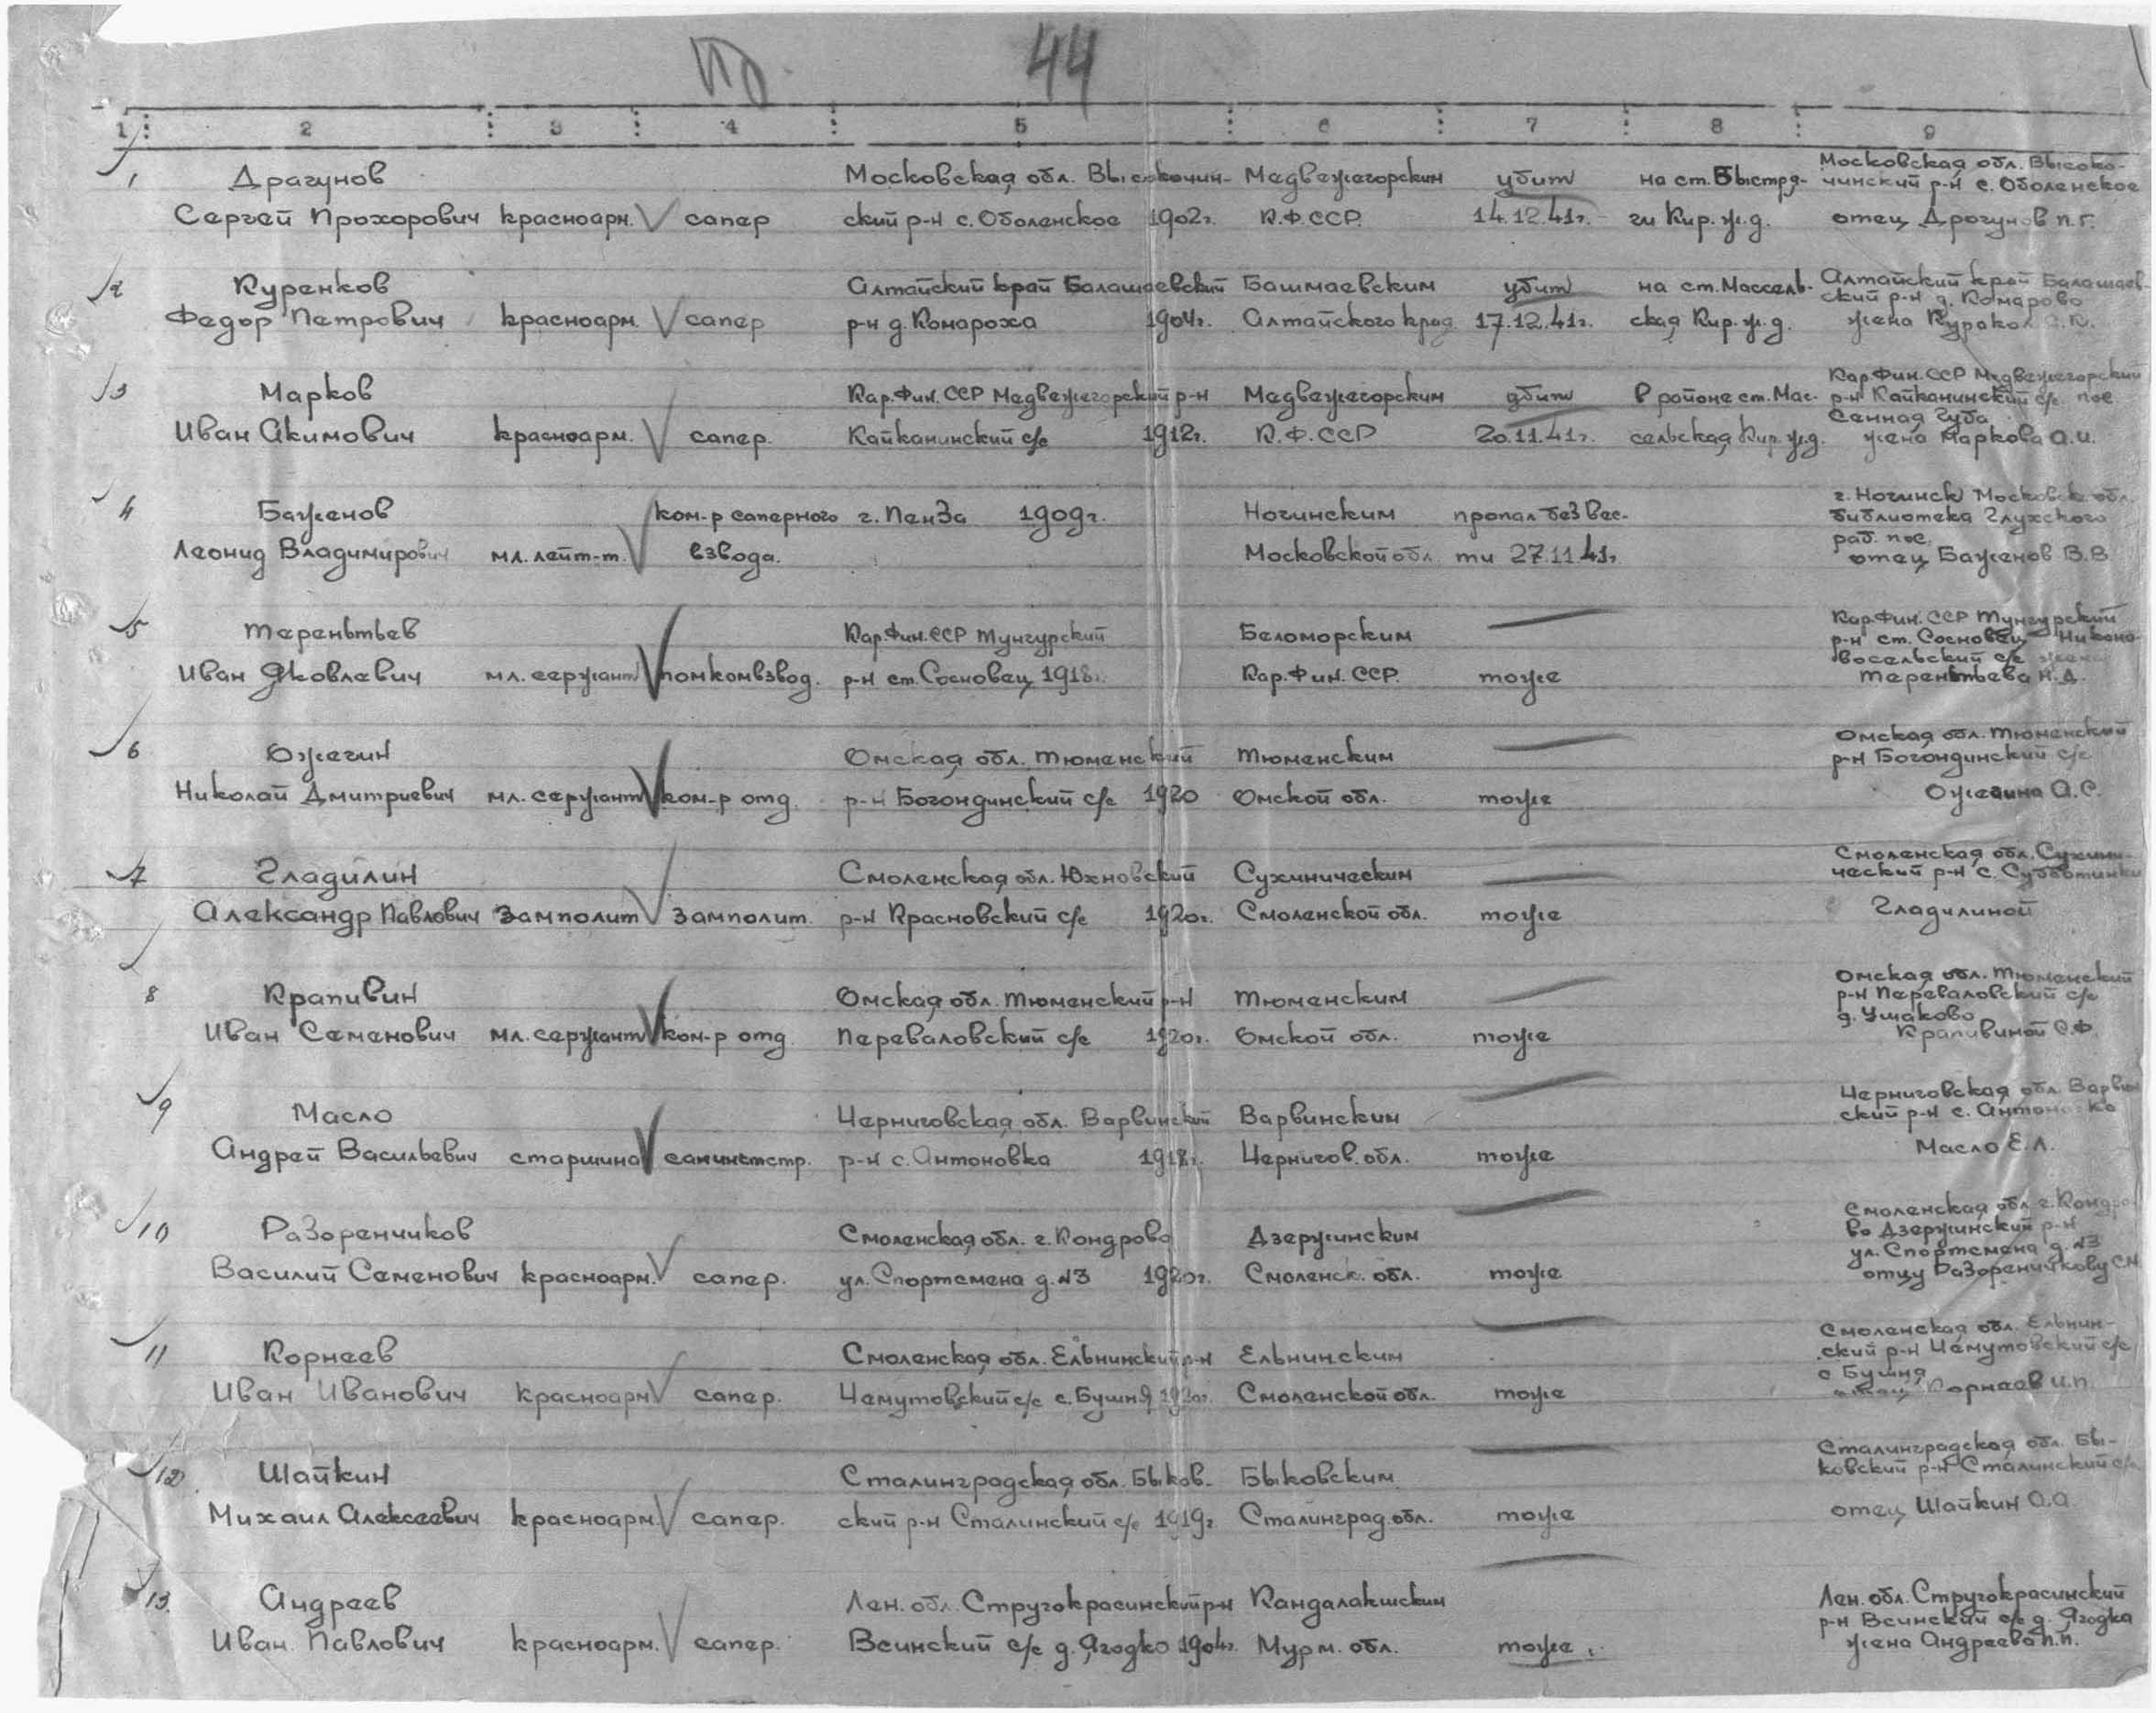 44
1 2 3 4 5 6 7 8 9
1 Драгунов Московская обл. Высокочин- Медвежегорским убит на ст. Быстря- Московская обл. Высоко-
чинский р-н с. Оболенское
Сергей Прохорович красноарм. сапер ский р-н с. Оболенское 1902г. К.Ф.ССР. 14.12.41г. ги Кир.ж.д. отец Драгунов П.Г.
2 Куренков Алтайский край Балашаевский Башмаевским убит на ст. Массель- Алтайский край Балашаев-
ский р-н д. Комарово
Федор Петрович красноарм. сапер р-н д. Комароха 1904г. Алтайского края 17.12.41г. ская Кир.ж.д. жена
3 Марков Кар.Фин.ССР Медвежегорский р-н Медвежегорским убит в районе ст. Мас- Кар.Фин.ССР Медвежегорский
р-н Кайканинский с/с пос
Сенная Губа
Иван Акимович красноарм. сапер. Кайканинский с/с 1912г. К.Ф.ССР 20.11.41г. сельская Кир.ж.д. жена Маркова А.И.
4 Баженов ком-р саперного г. Пенза 1909г. Ногинским пропал без вес- г. Ногинск Московск. обл.
библиотека Глухского
раб. пос.
Леонид Владимирович мл. лейт-т. взвода. Московской обл. ти 27.11.41г. отец Баженов В.В.
5 Терентьев Кар.Фин.ССР Тунгурский Беломорским Кар.Фин.ССР Тунгурский
р-н ст. Сосновец
восельский с/с жена
Иван Яковлевич мл. сержант помкомвзвод. р-н ст. Сосновец 1918г. Кар.Фин.ССР. тоже Терентьева Н.Д.
6 Ожегин Омская обл. Тюменский Тюменским Омская обл. Тюменский
р-н Богондинский с/с
Николай Дмитриевич мл. сержант ком-р отд. р-н Богондинский с/с 1920 Омской обл. тоже Ожегина А.С.
7 Гладилин Смоленская обл. Юхновский Сухиническим Смоленская обл. Сухини-
ческий р-н с. Субботники
Александр Павлович замполит замполит. р-н Красновский с/с 1920г. Смоленской обл. тоже Гладилиной
8 Крапивин Омская обл. Тюменский р-н Тюменским Омская обл. Тюменский
р-н Переваловский с/с
д. Ушаково
Иван Семенович мл. сержант ком-р отд. Переваловский с/с 1920г. Омской обл. тоже Крапивиной С.Ф.
9 Масло Черниговская обл. Варвинский Варвинским Черниговская обл. Варвин
ский р-н с. Антоновка
Андрей Васильевич старшина санинстр. р-н с. Антоновка 1918г. Чернигов. обл. тоже Масло Е.Л.
10 Разоренчиков Смоленская обл. г. Кондрово Дзержинским Смоленская обл. г. Кондро-
во Дзержинский р-н
ул. Спортсмена д. №3
Василий Семенович красноарм. сапер. ул. Спортсмена д. №3 1920г. Смоленск. обл. тоже отцу Разоренчикову С.М.
11 Корнеев Смоленская обл. Ельнинский р-н Ельнинским Смоленская обл. Ельнин-
ский р-н Чемутовский с/с
с Бушня
Иван Иванович красноарм. сапер. Чемутовский с/с с. Бушня 1920г. Смоленской обл. тоже отец Корнеев И.П.
12 Шайкин Сталинградская обл. Быков- Быковским Сталинградская обл. Бы-
ковский р-н Сталинский с/с
Михаил Алексеевич красноарм. сапер. ский р-н Сталинский с/с 1919г. Сталинград.обл. тоже отец Шайкин А.А.
13. Андреев Лен. обл. Стругокрасинский р-н Кандалакшским Лен. обл. Стругокрасинский
р-н Всинский с/с д. Ягодка
Иван Павлович красноарм. сапер. Всинский с/с д. Ягодко 1904г. Мурм. обл. тоже. жена Андреева П.П.